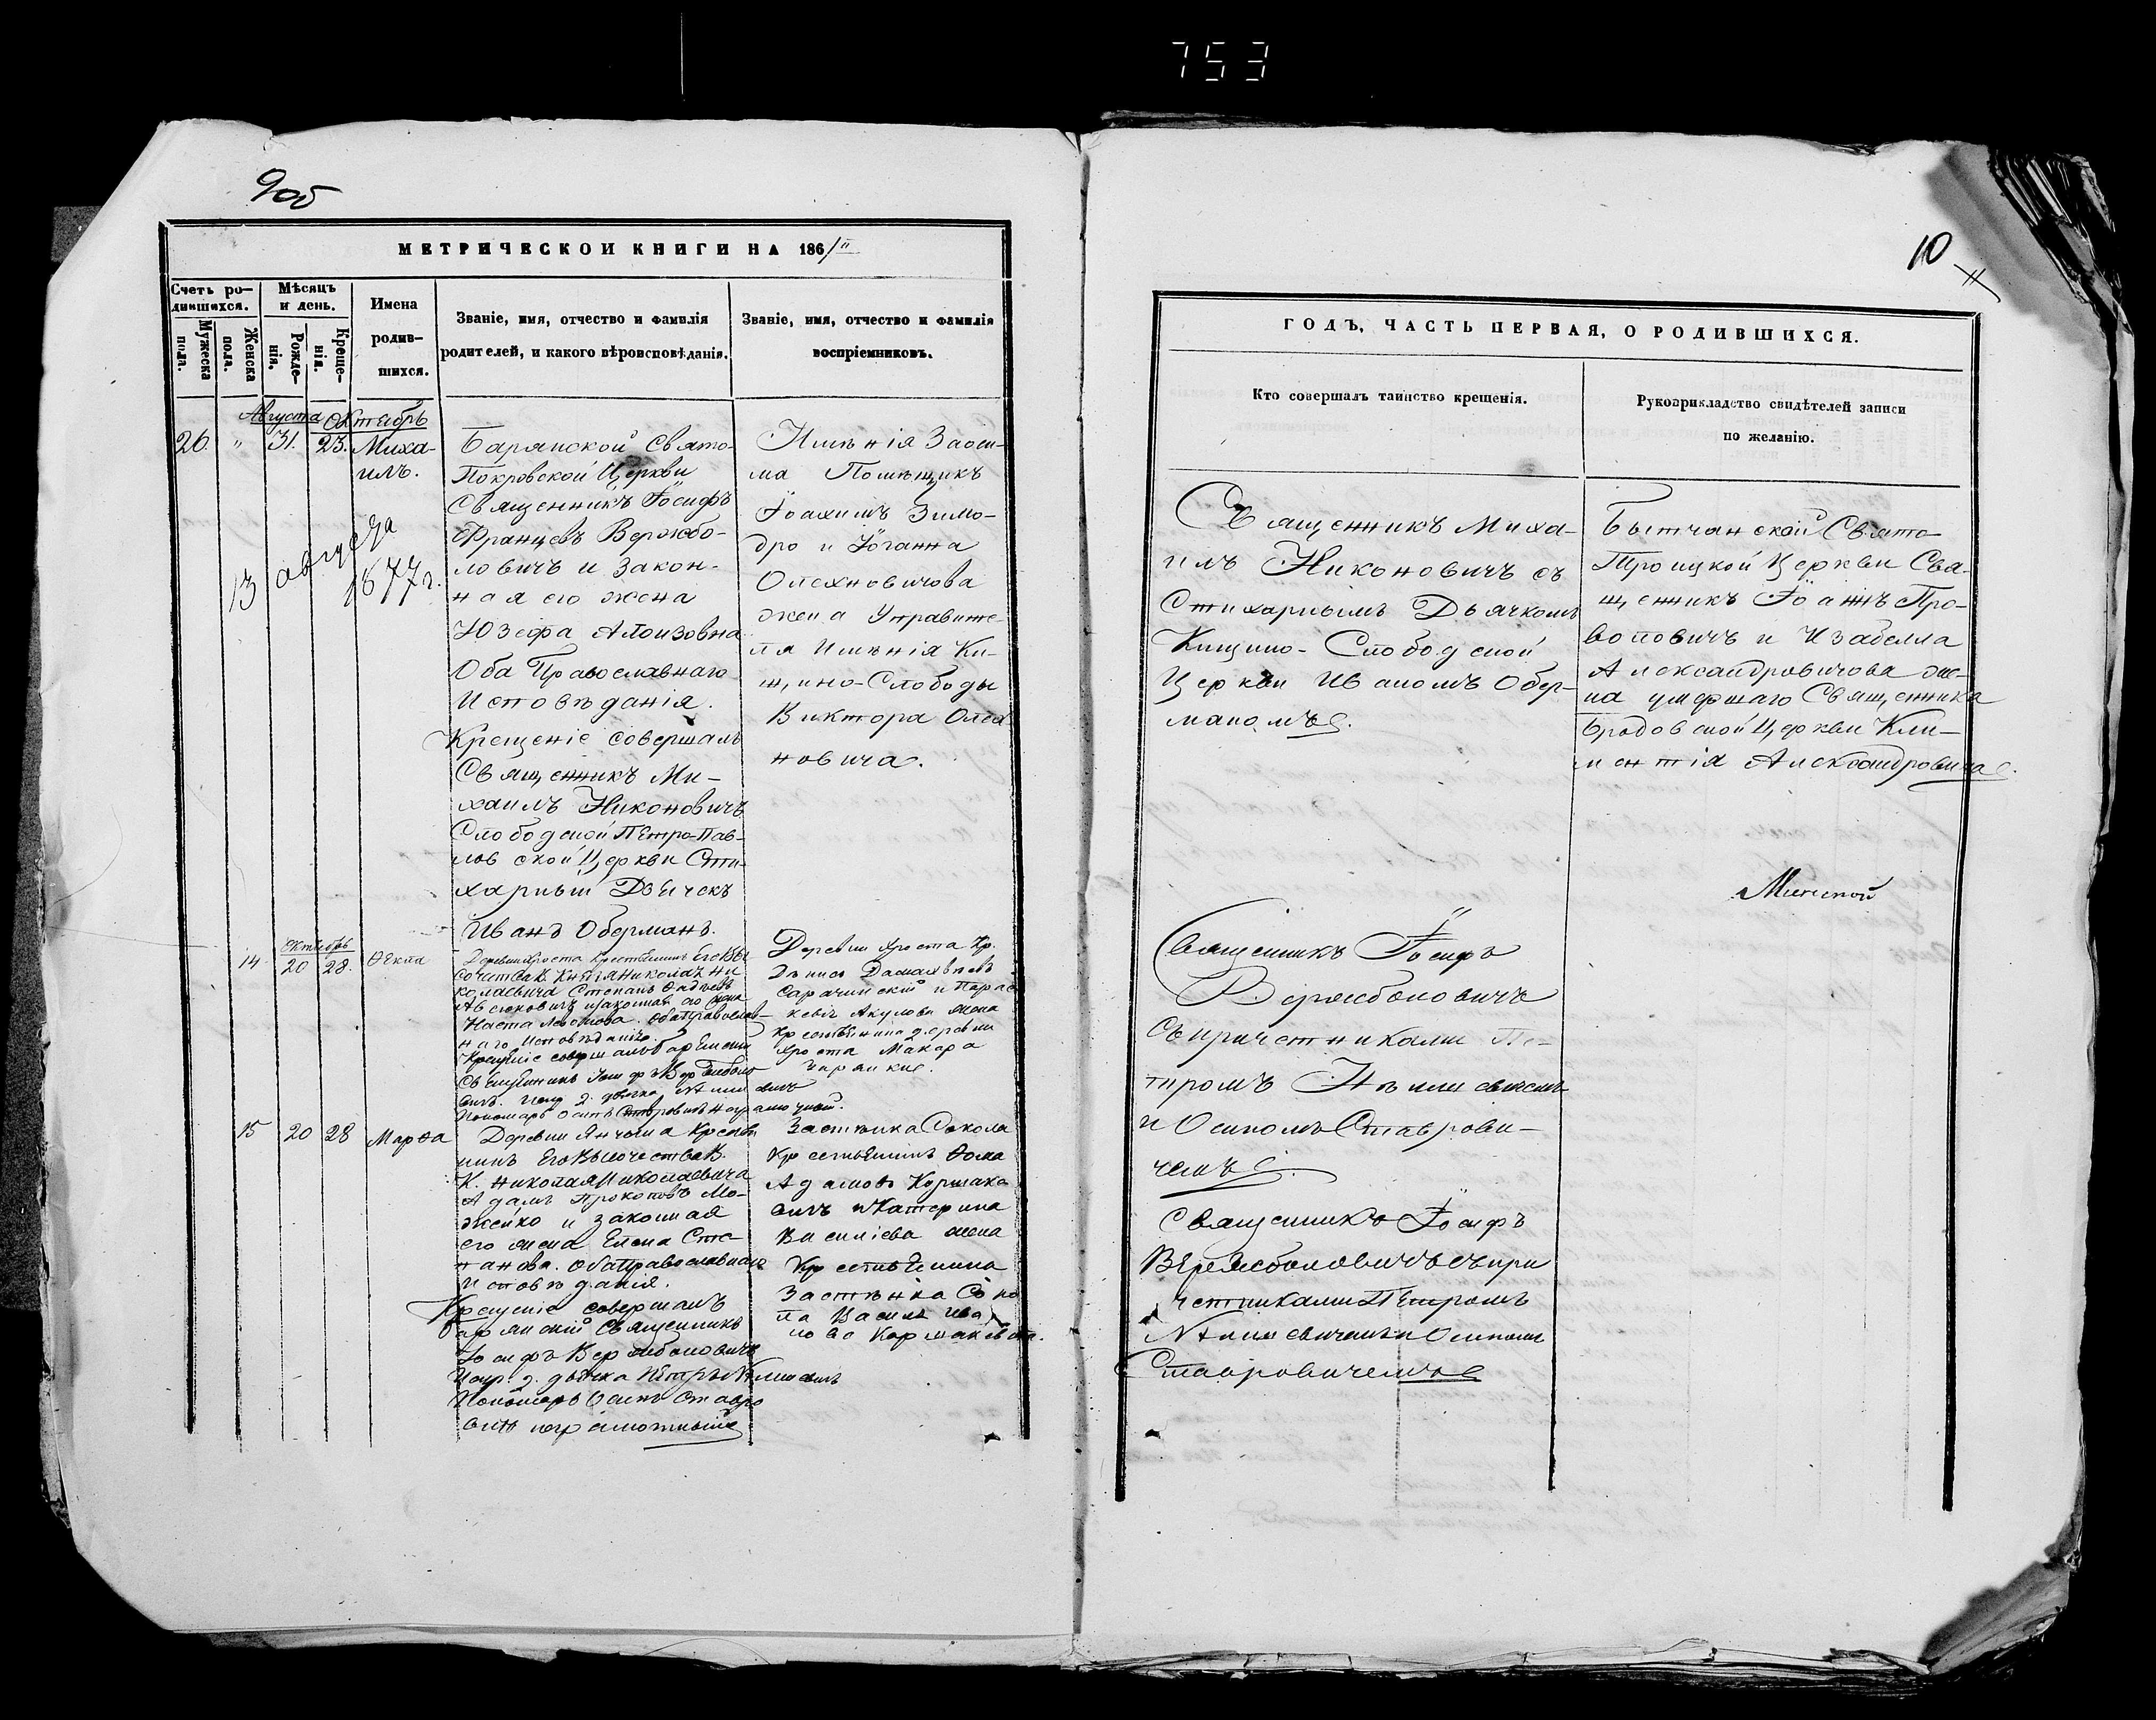 753
9об
МЕТРИЧЕСКОИ КНИГИ НА 1861
Счетъ ро-
дившихся.
Мѣсяцъ
и день.
Имена
родив-
шихся.
Званіе, имя, отчество и фамилія
родителей, и какого вѣроисповѣданія.
Званіе, имя, отчество и фамилія
воспріемниковъ.
Мужеска
пола.
Женска
пола.
Рожде-
нія.
Креще-
нія.
Августа Октябрь
26. " 31. 23. Миха-
илъ.
Барянской Свято-
Покровской Церкви
Священникъ Іосифъ
Францевъ Вержбо-
ловичъ и закон-
ная его жена
Юзефа Алоизовна
Оба Православнаго
Исповѣданія.
Крещеніе совершалъ
Священникъ Ми-
хаилъ Никоновичъ
Слободской Петро-Пав-
ловской Церкви Сти-
харный Дьячекъ
Иванъ Оберманъ.
Имѣнія Заоси-
ма Помѣщикъ
Іоахимъ Зимо-
дро и Іоганна
Олехновичова
жена Управите-
ля Имѣнія Ки-
щино-Слободы
Виктора Олех
новича.
13 августа
1877 г.
14 Октябрь
20 28. Ѳекла
Деревни Хроста Крестьянинъ Его Вы
сочества К. Князя Николая Ни
колаевича Степанъ
и законная его жена
Наста
наго Исповѣданія.
Крещеніе совершалъ Барянскій
Священникъ Іосифъ Вержболо
вичъ.
Пономарь Осипъ Ставровичъ неграмотный.
Деревни Хроста Кр.
Сарачинскій и Парас
кевія Акулова жена
Крестьянина деревни
Хроста Макара
15 20 28 Марѳа
Деревни Янчына Крестья
нинъ Его Высочества К.
К. Николая Николаевича
Адамъ Прокоповъ Мо-
жейко и законная
его жена Елена Сте-
панова. Оба Православнаго
Исповѣданія.
Крещеніе совершалъ
Барянскій Священникъ
Іосифъ Вержболовичъ
Пономарь Осипъ Ставро
вичъ неграмотный
Застѣнка Сокола
Крестьянинъ Ѳома
Адамовъ Кормаке
вичъ и Катерина
Василіева жена
Крестьянина
Застѣнка Соко
ла Василя Ива
нова Кормакевича.
10
ГОДЪ, ЧАСТЬ ПЕРВАЯ, О РОДИВШИХСЯ.
Кто совершалъ таинство крещенія.
Рукоприкладство свидѣтелей записи
по желанію.
Священникъ Миха-
илъ Никоновичъ съ
Стихарнымъ Дьячкомъ
Кищино-Слободской
Церкви Иваномъ Обер-
маномъ.
Бытчанской Свято-
Троицкой Церкви Свя-
щенникъ Іоаннъ Про-
волович и Изабелла
Александровичова же-
на умершаго Священника
Бродовской Церкви Кли-
ментія Александровича.
Минской
Священникъ Іосифъ
Вержболовичъ
съ причетниками Пе-
тромъ
и Осипомъ Ставрови-
чемъ.
Священникъ Іосифъ
Вержболовичъ съ при
четниками Петромъ
и Осипомъ
Ставровичемъ